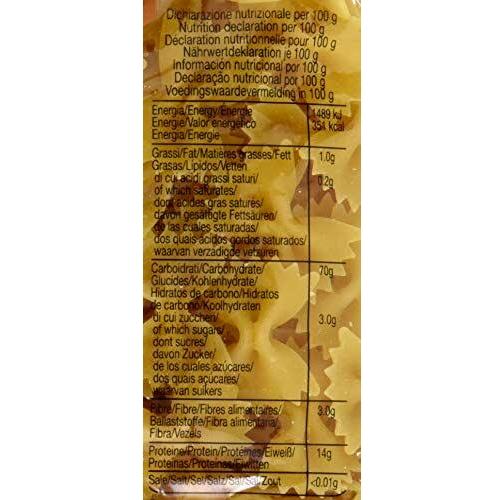 Dichiarazione nutrizionale per 100 g
Nutrition declaration per 100 g
Déclaration nutritionnelle pour 100 g
Nährwertdeklaration je 100 g
Información nutricional por 100 g
Declaração nutricional por 100 g
Voedingswaardevermelding in 100 g
Energia/Energy/Énergie 1489 kJ
Energie/Valor energético 351 kcal
Energia/Energie
Grassi/Fat/Matières grasses/Fett 1.0g
Grasas/Lípidos/Vetten
di cui acidi grassi saturi/ 0.2g
of which saturates/
dont acides gras saturés/
davon gesättigte Fettsäuren/
de las cuales saturadas/
dos quais ácidos gordos saturados/
waarvan verzadigde vetzuren
Carboidrati/Carbohydrate/ 70g
Glucides/Kohlenhydrate/
Hidratos de carbono/Hidratos
de carbono/Koolhydraten
di cui zuccheri/ 3.0g
of which sugars/
dont sucres/
davon Zucker/
de los cuales azúcares/
dos quais açúcares/
waarvan suikers
Fibre/Fibre/Fibres alimentaires/ 3.0g
Ballaststoffe/Fibra alimentaria/
Fibra/Vezels
Proteine/Protein/Protéines/Eiweiß/ 14g
Proteínas/Proteínas/Eiwitten
Sale/Salt/Sel/Salz/Sal/Sal/Zout <0.01g